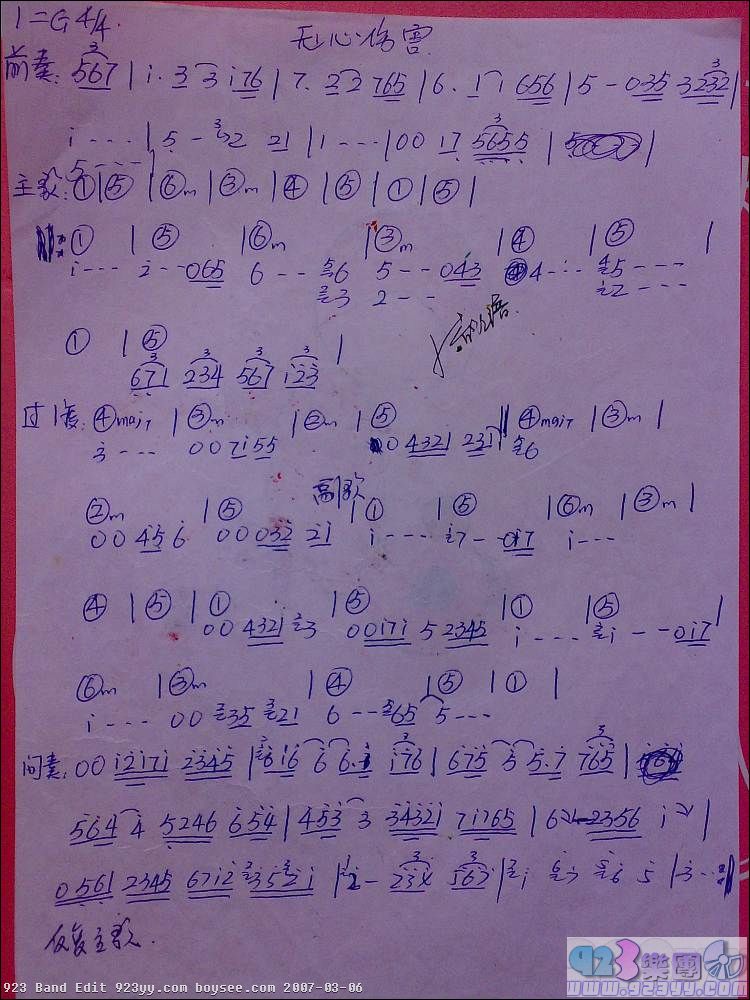 1=G 4/4.
无心伤害
前奏: 567 | i. 3 3 i76 | 7. 22 765 | 6. 1 i 656 | 5 - 035 3232 |
i - - - | 5 - 32 21 | 1 - - - | 00 17 5655 |
主歌: ① | ⑤ | ⑥m | ③m | ④ | ⑤ | ① | ⑤ |
① | ⑤ | ⑥m | ③m | ④ | ⑤ |
i - - - 2 - - 065 6 - - 56 5 - - 043 4 - - - 5 - - -
23 2 - - i2 - - -
① | ⑤ |
671 234 567 i23
过度: ④maj7 | ③m | ②m | ⑤ || ④maj7 | ③m |
3 - - - 00 7i55 00 4321 231 6
副歌
②m | ⑤ | ① | ⑤ | ⑥m | ③m |
00 45 6 00 032 21 i - - - i7 - - 0i7 i - - -
④ | ⑤ | ① | ⑤ | ① | ⑤ |
00 4321 23 00i7i 5 2345 i - - - 2i - - 0i7
⑥m | ③m | ④ | ⑤ | ① |
i - - - 00 235 221 6 - - 65 5 - - -
间奏: 00 i2i7i 2345 | 6i6 6 6. i i76 | 675 5 5.7 765 |
564 4 5246 654 | 453 3 34321 7i765 | 6 2356 i |
0561 2345 67i2 352i | 2 - 234 567 | 2i 67 56 5 | 3 - - :||
反复主歌.
923 Band Edit 923yy.com boysee.com 2007-03-06
923樂團
www.923yy.com